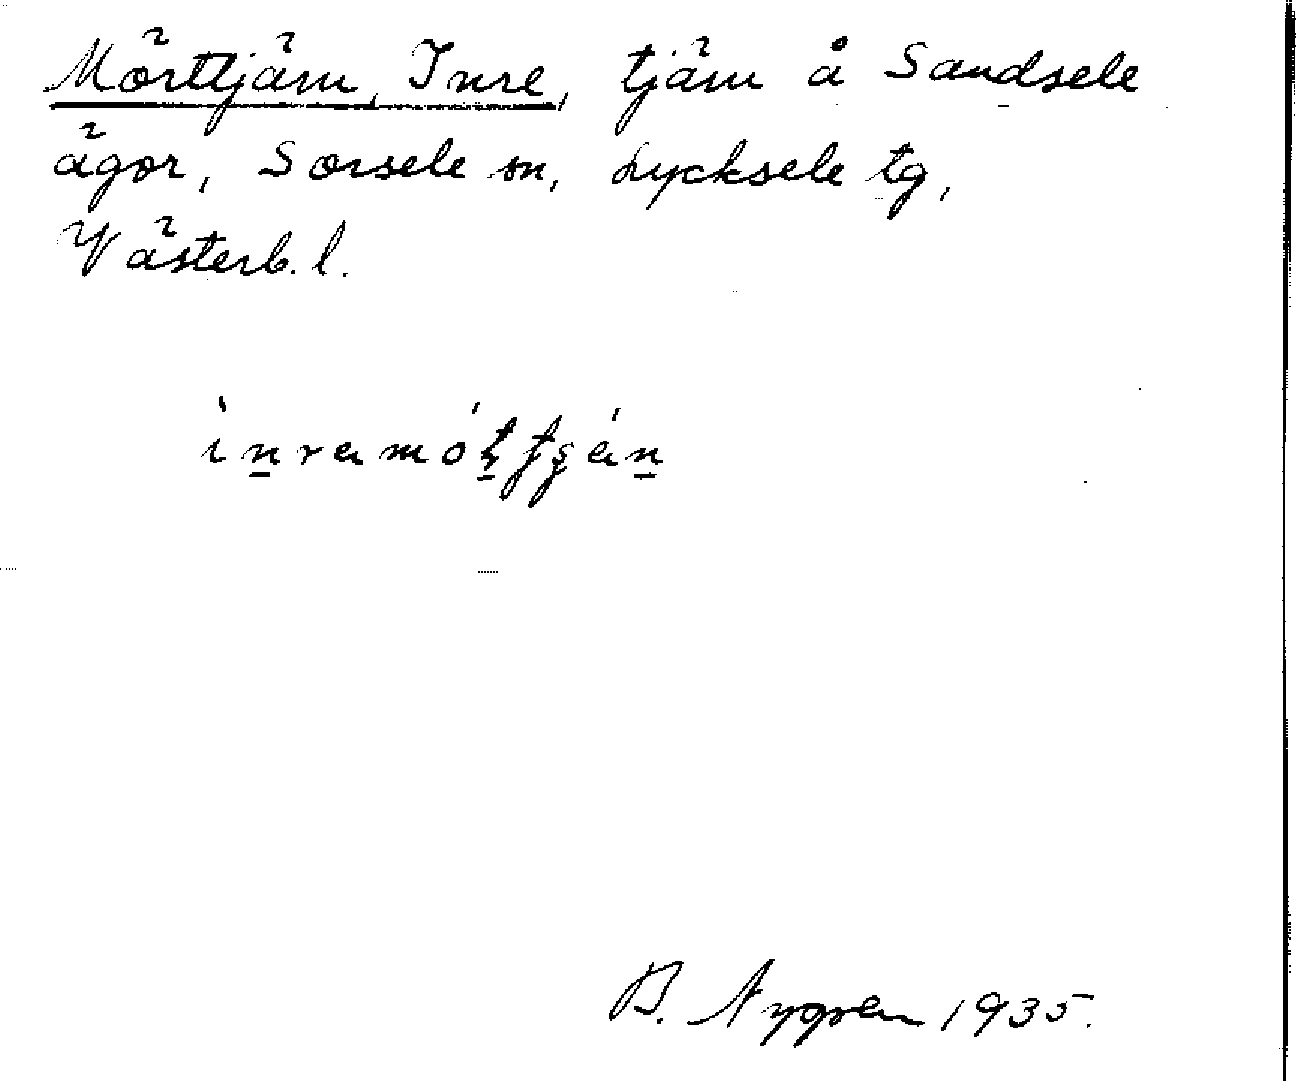 Mörttjärn, Inre, tjärn å Sandsele
ägor, Sorsele sn, Lycksele tg,
Västerb. l.
B. Nygren 1935.